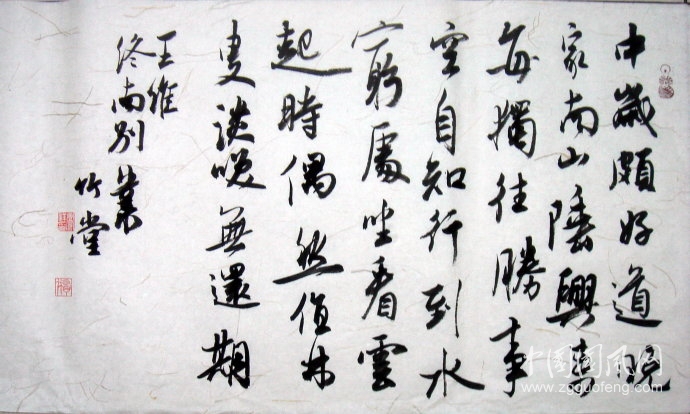 中歲頗好道晚
家南山陲興来
每獨往勝事
空自知行到水
窮處坐看雲
起時偶然值林
叟談咲無還期
王維
終南别業
竹堂
中国国风网
www.zgguofeng.com